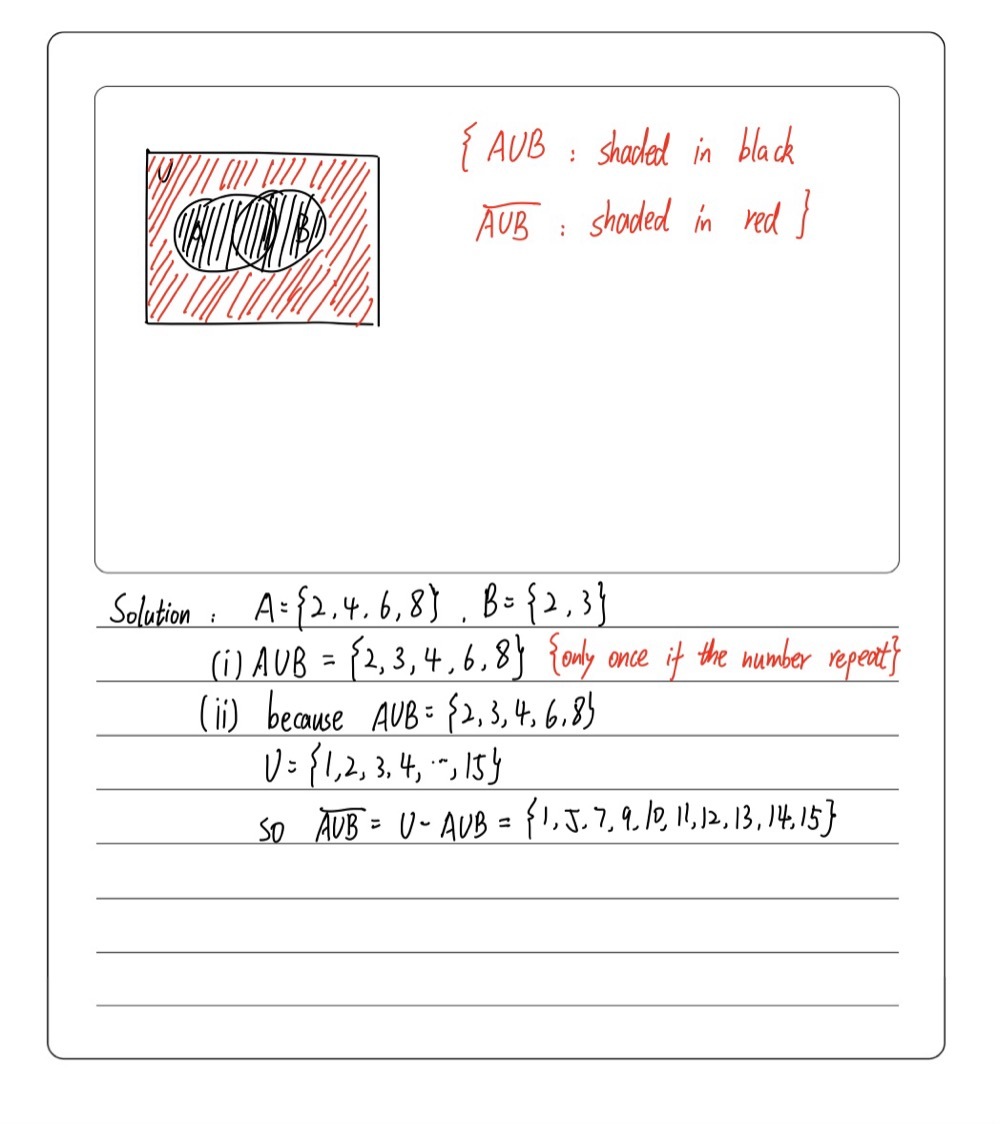 U
A
B
{ A∪B : shaded in black
A̅∪̅B̅ : shaded in red }
Solution : A={2,4,6,8} , B={2,3}
(i) A∪B = {2,3,4,6,8} {only once if the number repeat}
(ii) because A∪B={2,3,4,6,8}
U={1,2,3,4,⋯,15}
so A̅∪̅B̅ = U- A∪B = {1,5,7,9,10,11,12,13,14,15}